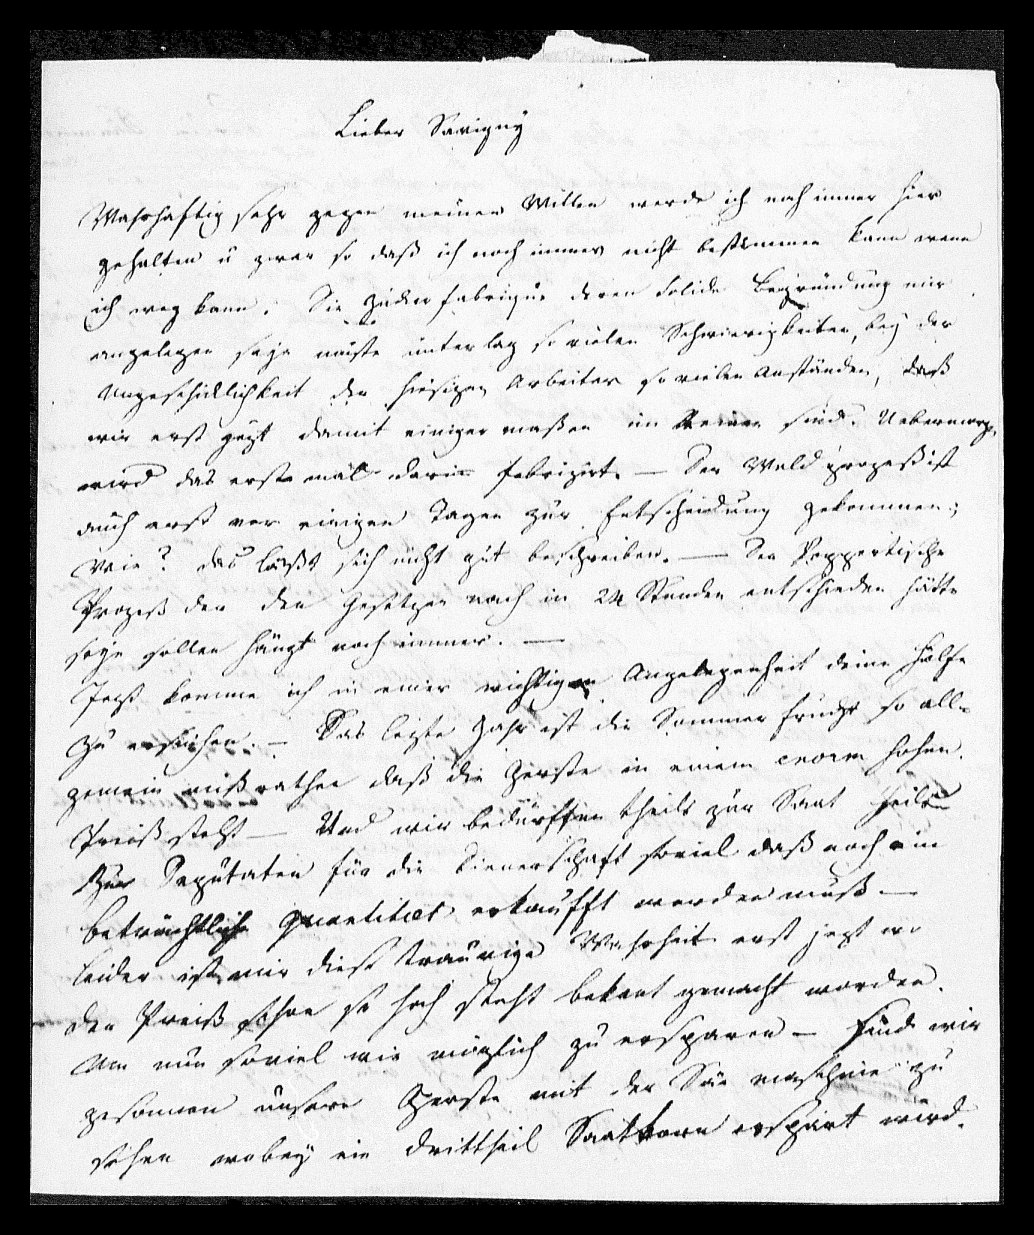 Lieber Savigny
Wahrhaftig sehr gegen meinen Willen werde ich noch immer hier
gehalten u zwar so daß ich noch immer nicht bestimmen kann wenn
ich weg kann. Die Zuckerfabrique deren solide Begründung mir
angelegen seyn muste unterlag so vielen Schwierigkeiten, bey der
Ungeschicklichkeit der hiesigen Arbeiter so vielen Anständen, daß
wir erst jezt damit einiger maßen im Reinen sind. Uebermorg.
wird das erste mal darin fabrizirt. — Der Wald prozeß ist
auch erst vor einigen Tagen zur Entscheidung gekommen;
Wie? das läßt sich nicht gut beschreiben. — Der
Prozeß der den Gesetzen nach in 24 Stunden entschieden hätte
seyn sollen hängt noch immer. —
Jezt komme ich in einer wichtigen Angelegenheit deine Hülfe
zu ersuchen. — Das lezte Jahr ist die Sommer frucht so all-
gemein mißrathen daß die Gerste in einem enorm hohen
Preiß steht — Und wir bedürffen theils zur Saat theils
zur Deputaten für die Dienerschaft soviel daß noch ein
beträchtliche Quantitæt erkaufft werden muß —
leider ist mir diese traurige Wahrheit erst jezt wo
der Preiß schon so hoch steht bekant gemacht worden.
Um nun soviel wie möglich zu ersparen — sind wir
gesonnen unsere Gerste mit der Säe maschine zu
sehen wobey ein drittheil Saatkorn erspart wird.